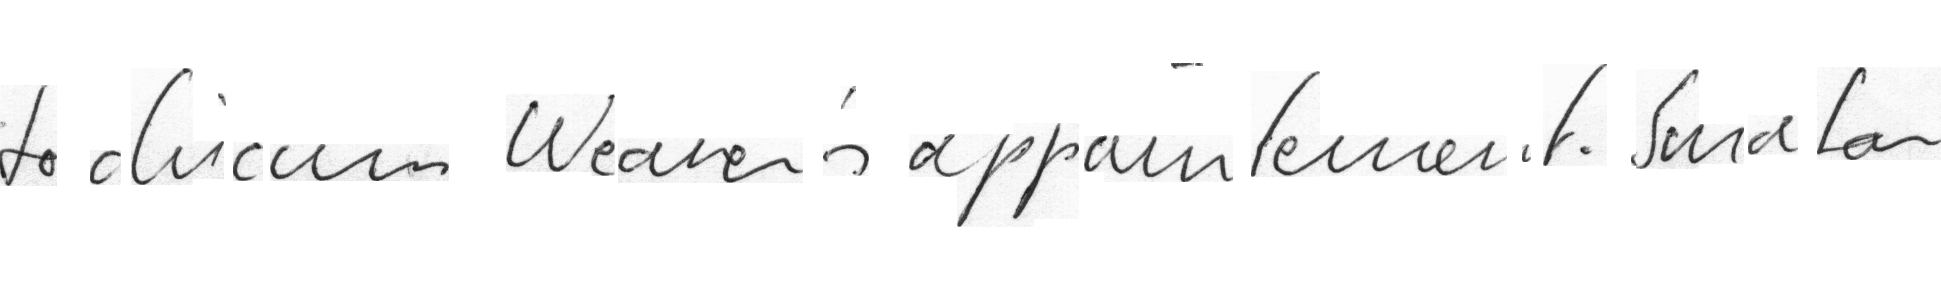 to discuss Weaver's appointment. Senator